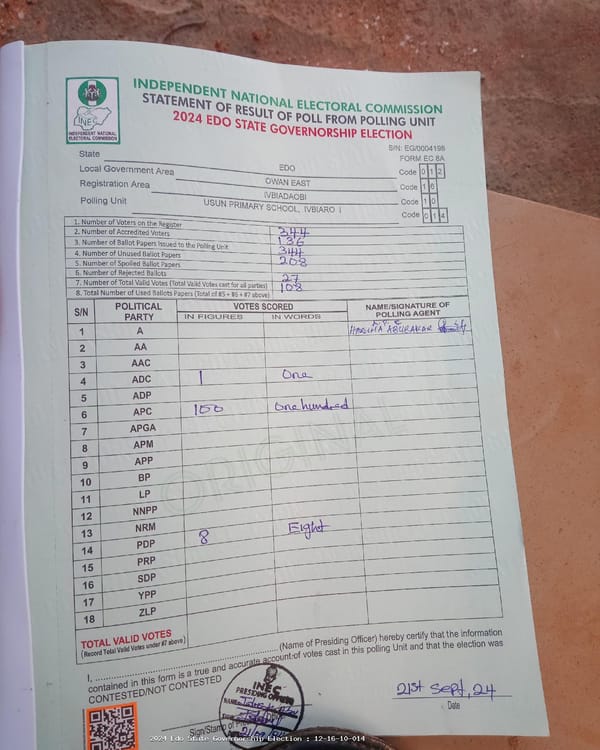 INDEPENDENT NATIONAL ELECTORAL COMMISSION
STATEMENT OF RESULT OF POLL FROM POLLING UNIT
2024 EDO STATE GOVERNORSHIP ELECTION
INEC
INDEPENDENT NATIONAL ELECTORAL COMMISSION
S/N: EG/0004198
FORM EC 8A
State EDO Code 0 1 2
Local Government Area OWAN EAST Code 1 6
Registration Area IVBIADAOBI Code 1 0
Polling Unit USUN PRIMARY SCHOOL, IVBIARO I Code 0 1 4
1. Number of Voters on the Register 344
2. Number of Accredited Voters 136
3. Number of Ballot Papers Issued to the Polling Unit 344
4. Number of Unused Ballot Papers 208
5. Number of Spoiled Ballot Papers
6. Number of Rejected Ballots 27
7. Number of Total Valid Votes (Total Valid Votes cast for all parties) 108
8. Total Number of Used Ballots Papers (Total of #5 + #6 + #7 above)
S/N POLITICAL PARTY VOTES SCORED NAME/SIGNATURE OF POLLING AGENT
IN FIGURES IN WORDS
1 A
2 AA
3 AAC
4 ADC 1 One
5 ADP
6 APC 100 One hundred
7 APGA
8 APM
9 APP
10 BP
11 LP
12 NNPP
13 NRM
14 PDP 8 Eight
15 PRP
16 SDP
17 YPP
18 ZLP
ORIGINAL
TOTAL VALID VOTES
(Record Total Valid Votes under #7 above)
I, (Name of Presiding Officer) hereby certify that the information
contained in this form is a true and accurate account of votes cast in this polling Unit and that the election was
CONTESTED/NOT CONTESTED
INEC
PRESIDING OFFICER
21st Sept, 24
Date
Sign/Stamp of
2024 Edo State Governorship Election : 12-16-10-014